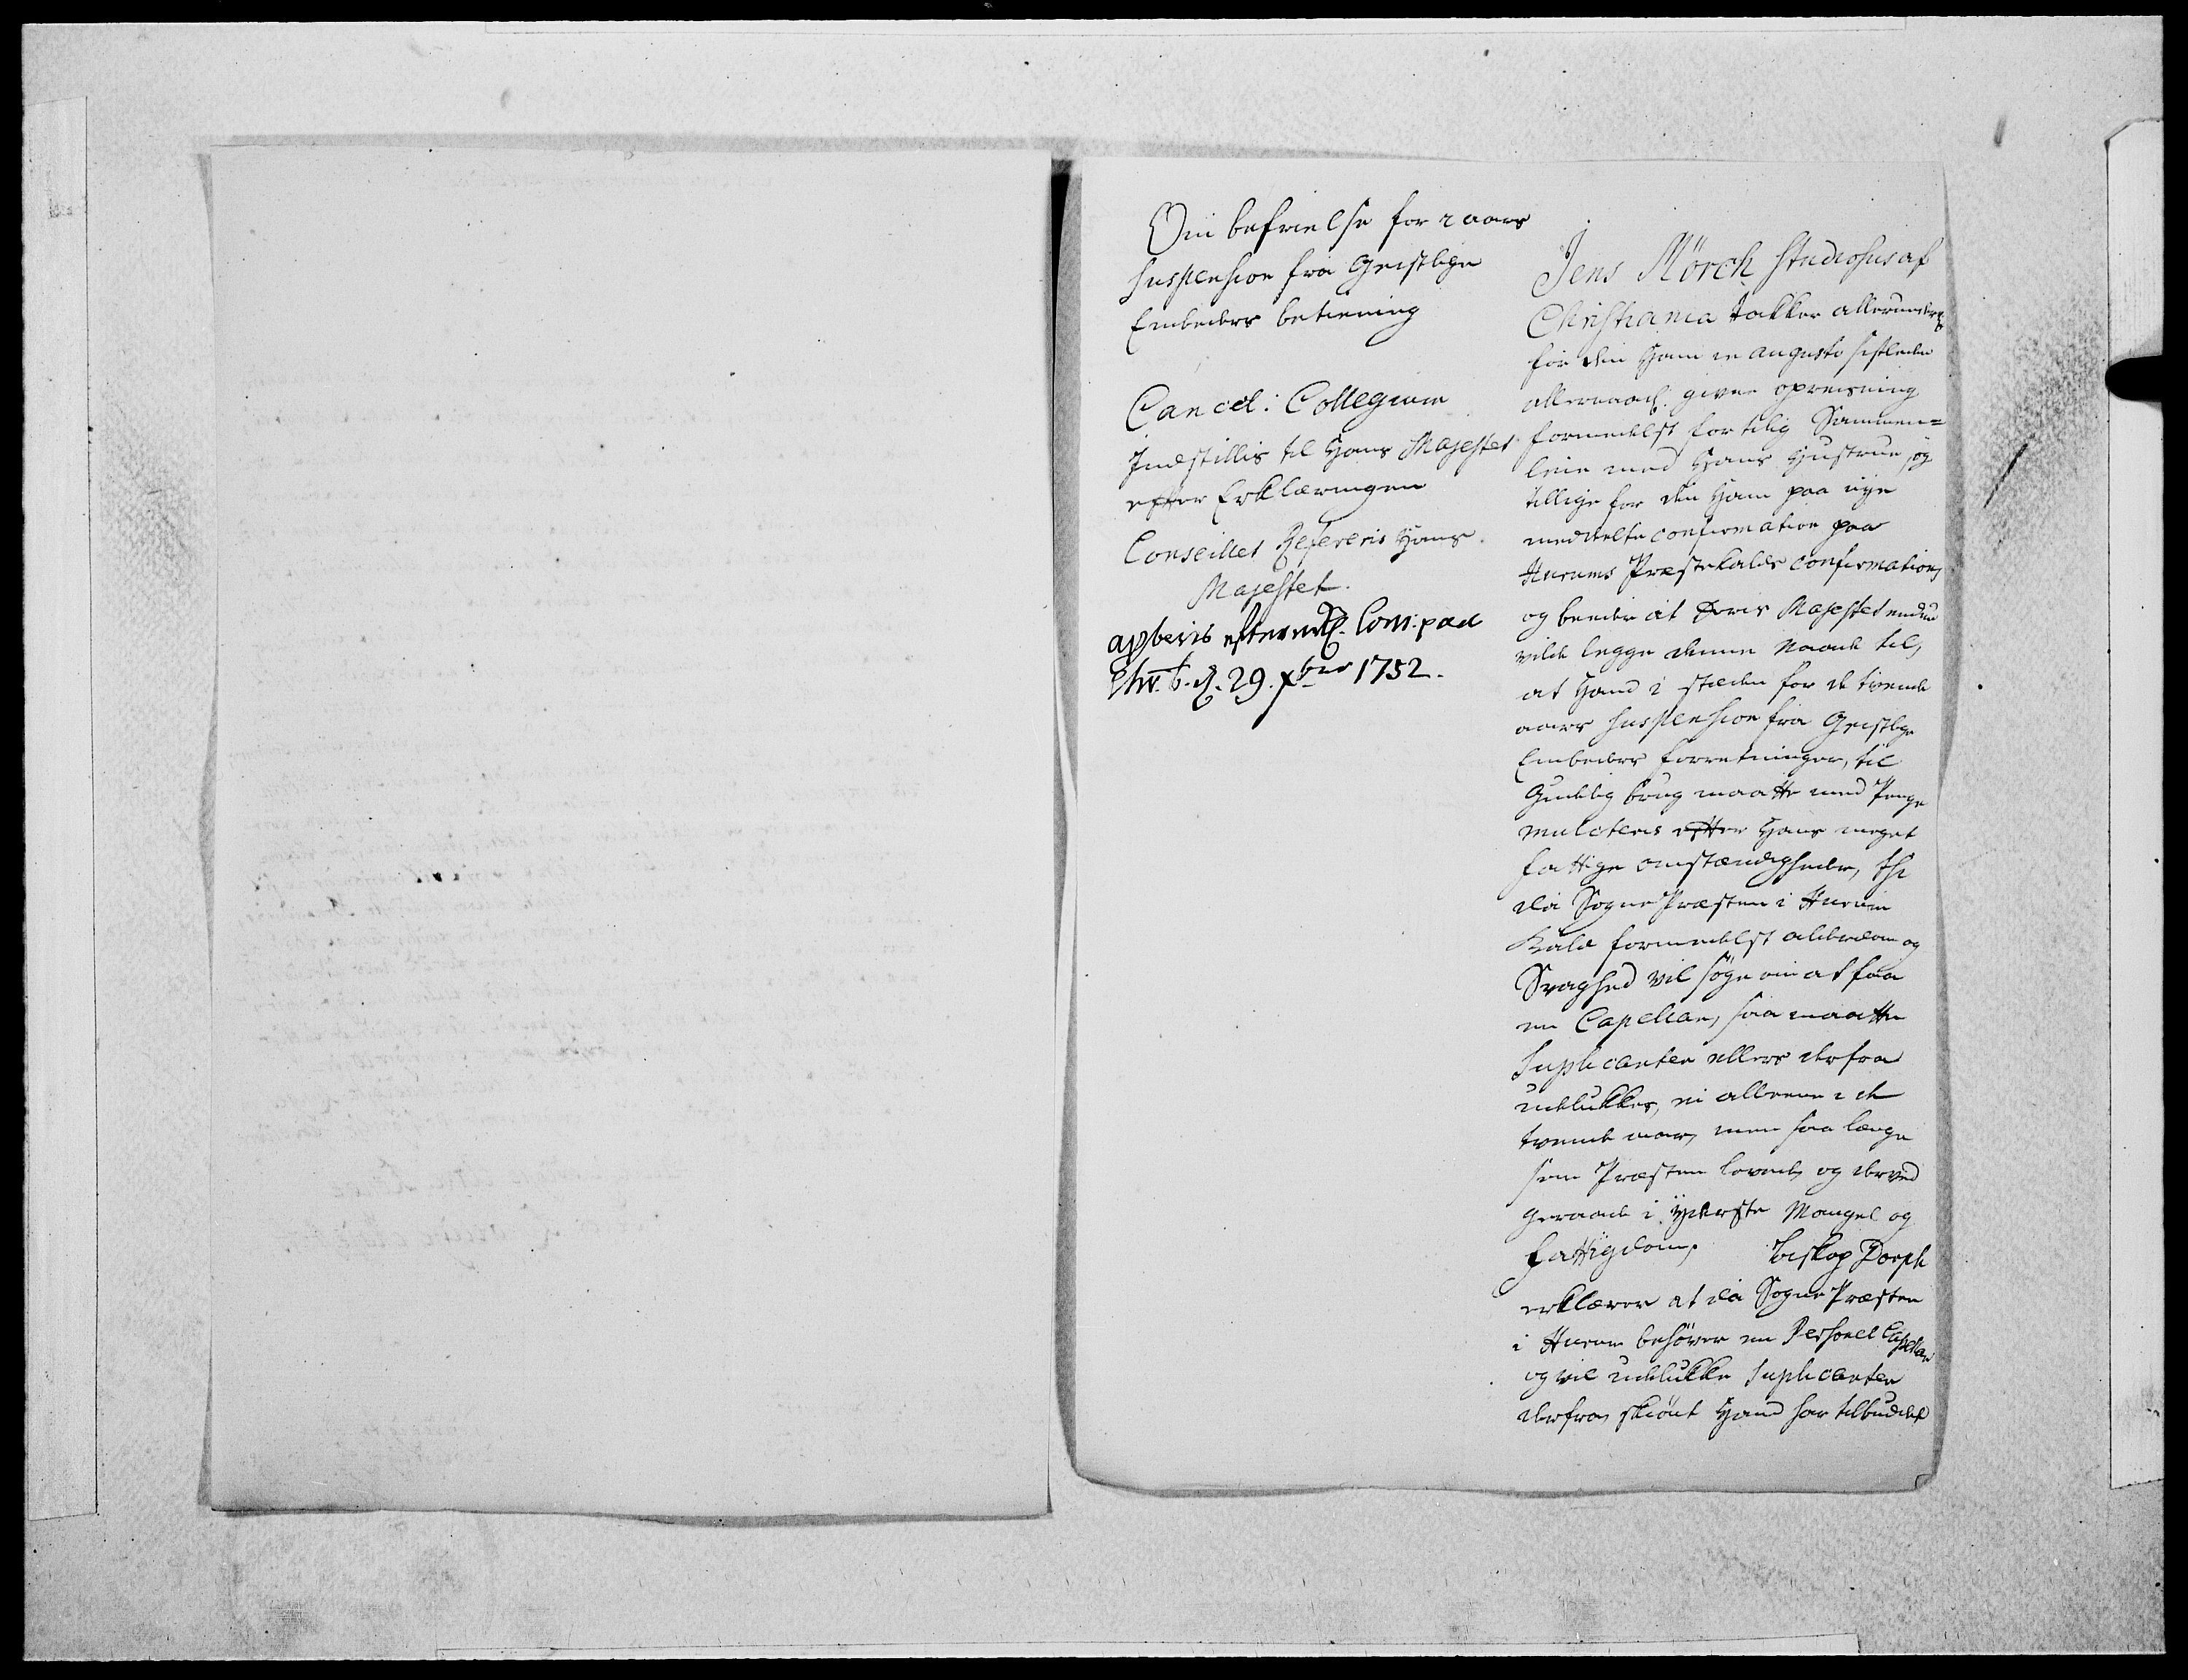 Om befrielse for 2 aars
Suspension fra Geistlige
Embeders betiening
Cancel: Collegium
Indstillis til Hans Majestet
efter Erklæringen
Conseillet Refereris Hans
Majestet.
efter Com: paa
d. 29. xbr 1752.
Jens Mörch Studiosus af
Christiania takker allerunderd.
for den Ham in augusto sistleden
allernaad. givne opreisning
formedelst fortilig Sammen=
leie med Hans Hustrue, og
tillige for den Ham paa nye
meddelte confirmation paa
Hurums Præstekalds confirmation,
og beeder at Deris Majestet endnu
vilde legge denne Naade til,
at Hand i stæden for de tvende
aars Suspension fra Geistlige
Embeders forretninger, til
Gudelig brug maatte med Penge
mulcteris efter Hans meget
fattige omstændigheder, thi
da Sogne Præsten i Hurum
Kald formedelst alderdom og
Svaghed vil söge om at faa
en Capellan, saa maatte
Suplicanten ellers derfra
udelukkes, ei alleene i de
tvende aar, men saa længe
som Præsten levede, og derved
geraade i yderste Mangel og
fattigdom. Biskop Dorph
erklærer at da Sogne Præsten
i Hurum behöver en Personel Capellan
og vil udelukke Suplicanten
derfra, skiönt Hand har tilbudet